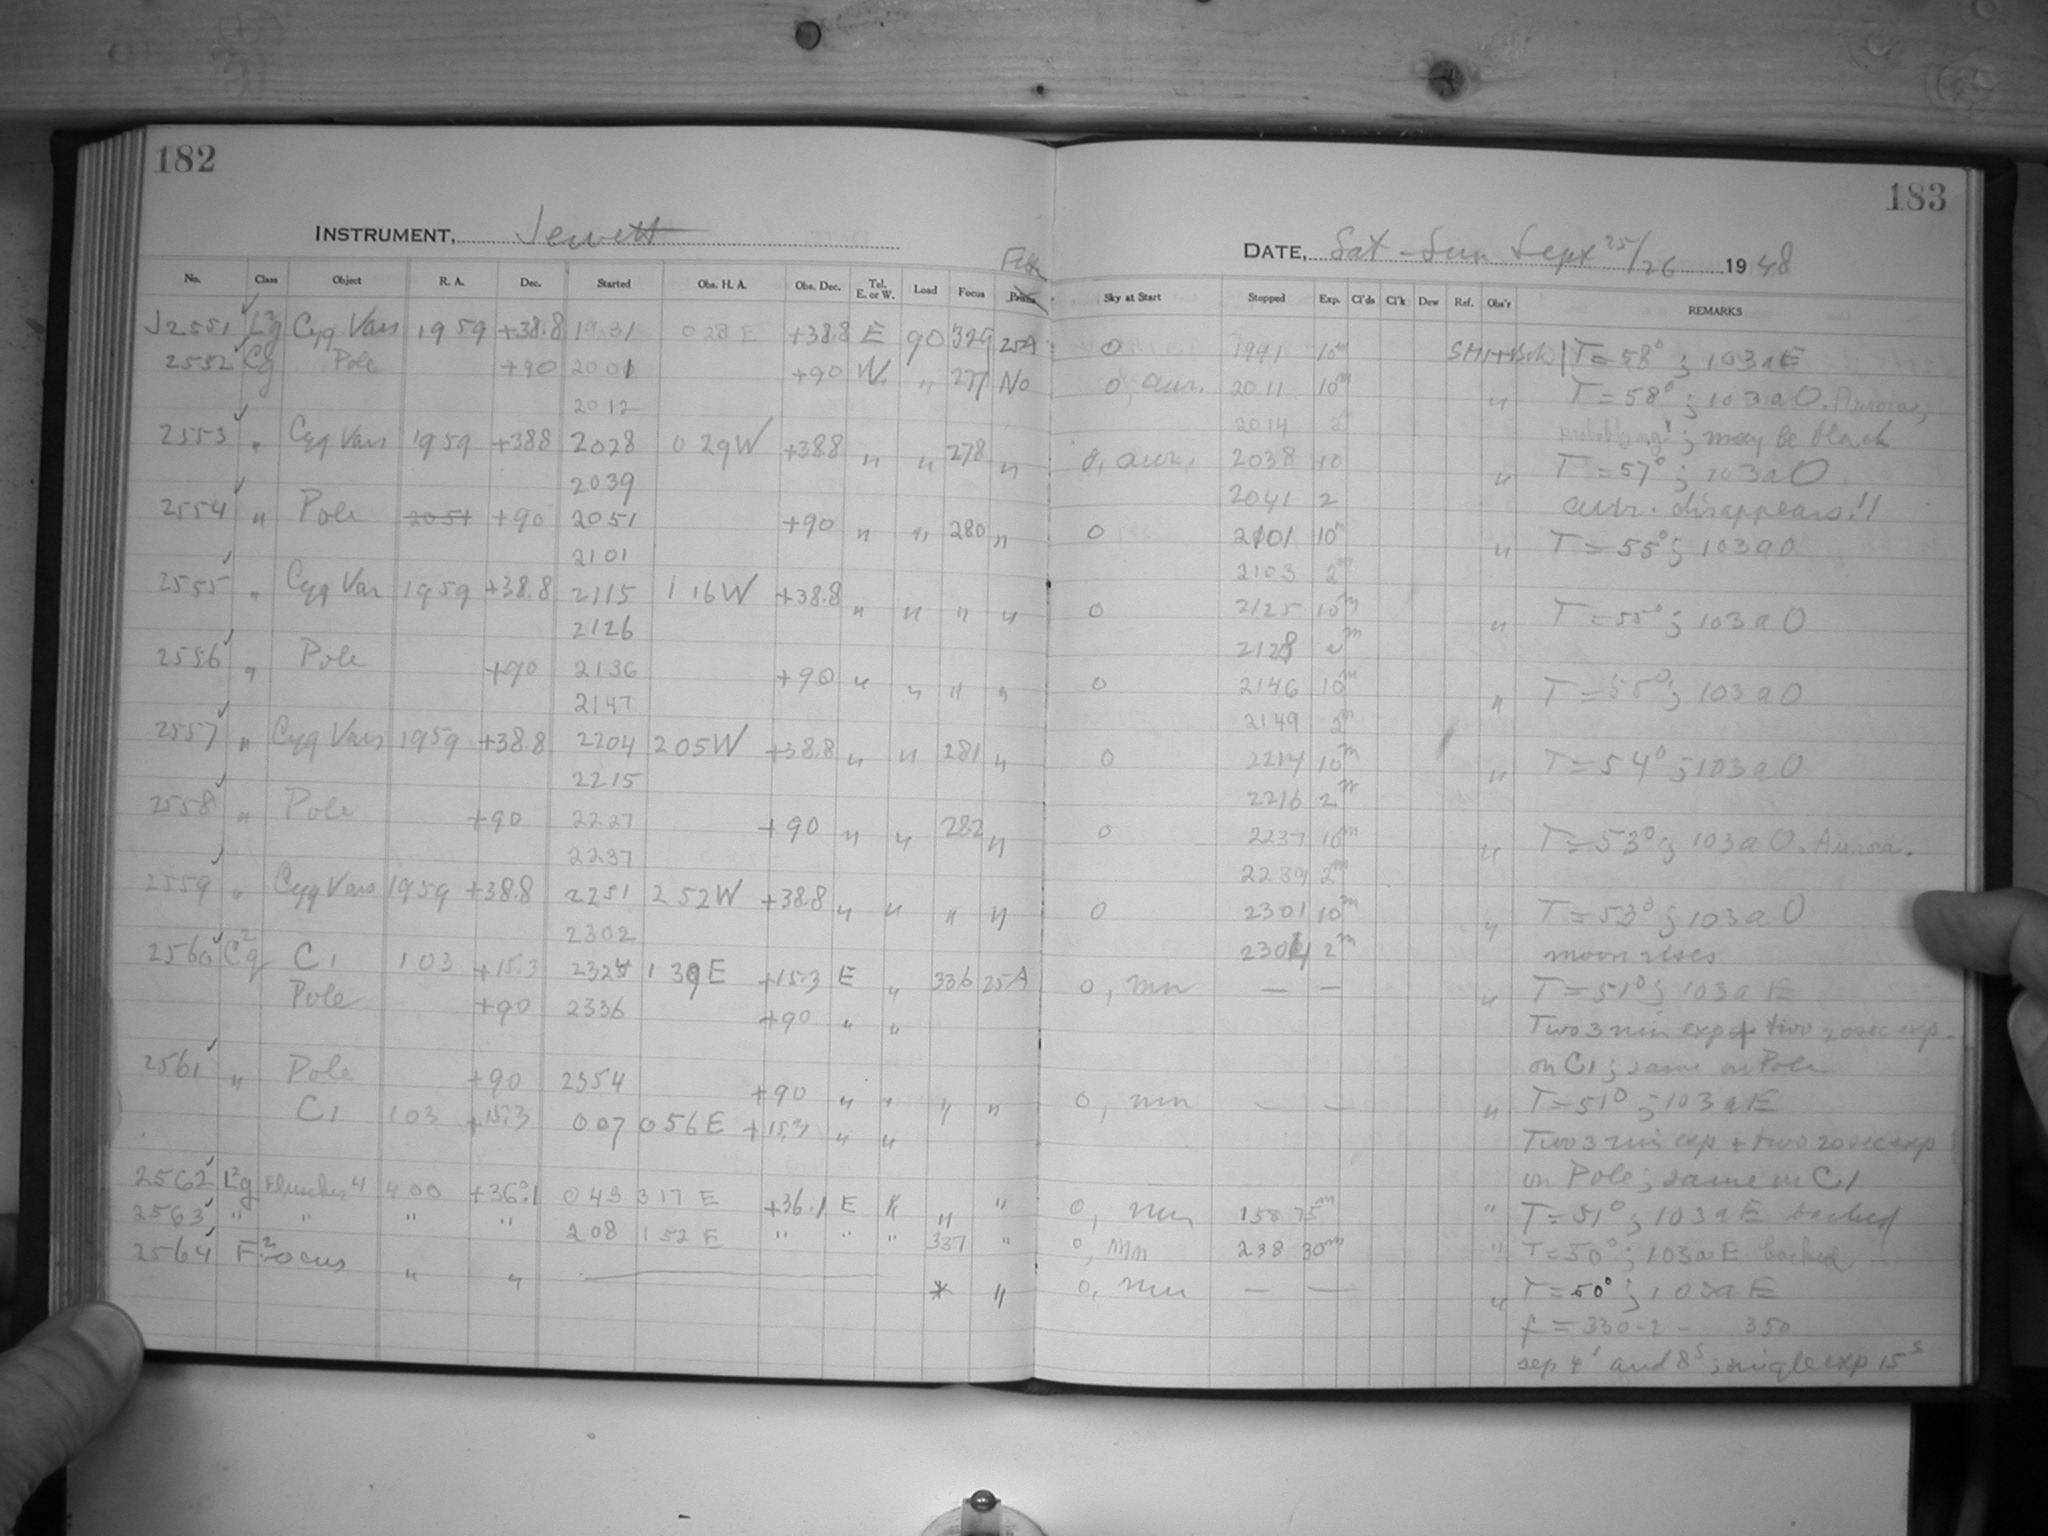 182
183
INSTRUMENT, Jewett
DATE, Sat - Sun Sept 25/26 1948
No. Class Object R. A. Dec. Started Obs. H. A. Obs. Dec. Tel. E. or W. Load Focus Filter Sky at Start Stopped Exp. Cl'ds Cl'k Dew Ref. Obs'r REMARKS
J2551 L²g Cyg Vars 1959 +38.8 1931 028 E +38.8 E 90 329 25A 0 1941 10m T=58°; 103aE
2552 Cg Pole +90 2001 +90 W " 277 No 0, aur. 2011 10m " T=58°; 103aO.
2012 2014 2m ; may be black
2553 " Cyg Vars 1959 +388 2028 0 29W +388 " " 278 " 0, aur. 2038 10 " T=57°; 103aO
2039 2041 2 aur. disappears!!
2554 " Pole 2051 +90 2051 +90 " " 280 " 0 2101 10m " T=55°; 103aO
2101 2103 2m
2555 " Cyg Var 1959 +38.8 2115 1 16W +38.8 " " " " 0 2125 10m " T=55°; 103aO
2126 2128 2m
2556 " Pole +90 2136 +90 " " " " 0 2146 10m " T=55°; 103aO
2147 2149 2m
2557 " Cyg Vars 1959 +38.8 2204 205W +38.8 " " 281 " 0 2214 10m " T=54°; 103aO
2215 2216 2m
2558 " Pole +90 2227 +90 " " 282 " 0 2237 10m " T=53°; 103aO. Aurora.
2237 2239 2m
2559 " Cyg Vars 1959 +38.8 2251 252W +38.8 " " " " 0 2301 10m " T=53°; 103aO
2302 2304 2m moon rises
2560 C²g C1 103 +15.3 2324 1 39E +15.3 E " 336 25A 0, mn — — " T=51°; 103aE
Pole +90 2336 +90 " " Two 3 min exp + two 20 sec exp.
on C1; same on Pole
2561 " Pole +90 2354 +90 " " " " 0, mn — — " T=51°; 103aE
C1 103 +15.3 007 056E +15.3 " " Two 3 min exp + two 20 sec exp
on Pole; same on C1
2562 L²g 400 +36°.1 043 317 E +36.1 E K " " 0, mn 158 75m " T=51°; 103aE backed
2563 " " " " 208 152 E " " " 337 " 0, mn 238 30m " T=50°; 103aE backed
2564 F² Focus " " * " 0, mn — — " T=50°; 103aE
f = 330-2- 350
sep 4' and 8s; single exp 15s